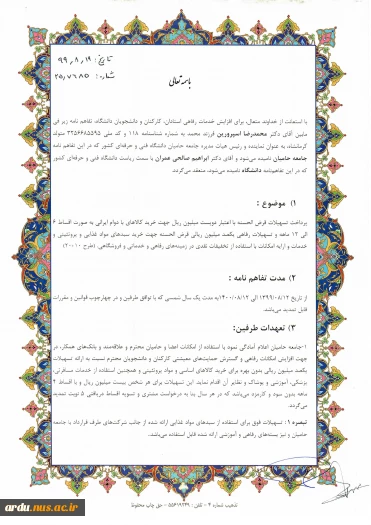 تاریخ: ۹۹,۸,۱۹
شماره: ۲۵,۷۶۸۵
باسمه تعالی
با استعانت از خداوند متعال، برای افزایش خدمات رفاهی استادان، کارکنان و دانشجویان دانشگاه، تفاهم نامه زیر فی
مابین آقای دکتر محمدرضا اسپرورین فرزند محمد به شماره شناسنامه ۱۱۸ و کد ملی ۳۲۵۶۶۸۵۵۹۵ متولد
کرمانشاه، به عنوان نماینده و رئیس هیأت مدیره جامعه حامیان دانشگاه فنی و حرفه‌ای کشور که در این تفاهم نامه
جامعه حامیان نامیده می‌شود و آقای دکتر ابراهیم صالحی عمران با سمت ریاست دانشگاه فنی و حرفه‌ای کشور
که در این تفاهم‌نامه دانشگاه نامیده می‌شود، منعقد می‌گردد.
۱) موضوع :
پرداخت تسهیلات قرض الحسنه با اعتبار دویست میلیون ریال جهت خرید کالاهای با دوام ایرانی به صورت اقساط ۶
الی ۱۲ ماهه و تسهیلات قرض الحسنه یکصد میلیون ریالی جهت خرید سبدهای مواد غذایی و پروتئینی و
خدمات و ارایه امکانات با استفاده از تخفیفات نقدی در زمینه‌های رفاهی و خدماتی و فروشگاهی. (طرح ۱۰-۲۰)
۲) مدت تفاهم نامه :
از تاریخ ۱۳۹۹/۰۸/۱۲ الی ۱۴۰۰/۰۸/۱۲ به مدت یک سال شمسی که با توافق طرفین و در چهارچوب قوانین و مقررات
قابل تمدید می‌باشد.
۳) تعهدات طرفین:
۱-جامعه حامیان اعلام آمادگی نمود با استفاده از امکانات اعضا و حامیان محترم و علاقه‌مند و بانک‌های همکار، در
جهت افزایش امکانات رفاهی و گسترش حمایت‌های معیشتی کارکنان و دانشجویان محترم نسبت به ارائه تسهیلات
یکصد میلیون ریالی بدون بهره برای خرید کالاهای اساسی و مواد پروتئینی و همچنین استفاده از خدمات مسافرتی،
پزشکی، آموزشی و پوشاک و نظایر آن اقدام نماید. این تسهیلات برای هر شخص بیست میلیون ریال و با اقساط ۴
ماهه بدون سود و کارمزد می‌باشد که در هر سال بنا به درخواست مشتری و تسویه اقساط دریافتی ۵ نوبت تمدید
می‌گردد.
تبصره ۱ : تسهیلات فوق برای استفاده از سبدهای مواد غذایی ارائه شده از جانب شرکت‌های طرف قرارداد با جامعه
حامیان و نیز بسته‌های رفاهی و آموزشی ارائه شده قابل استفاده می‌باشد.
تذهیب شماره ۴ - تلفن : ۵۵۶۱۹۲۴۹ - حق چاپ محفوظ
ardu.nus.ac.ir